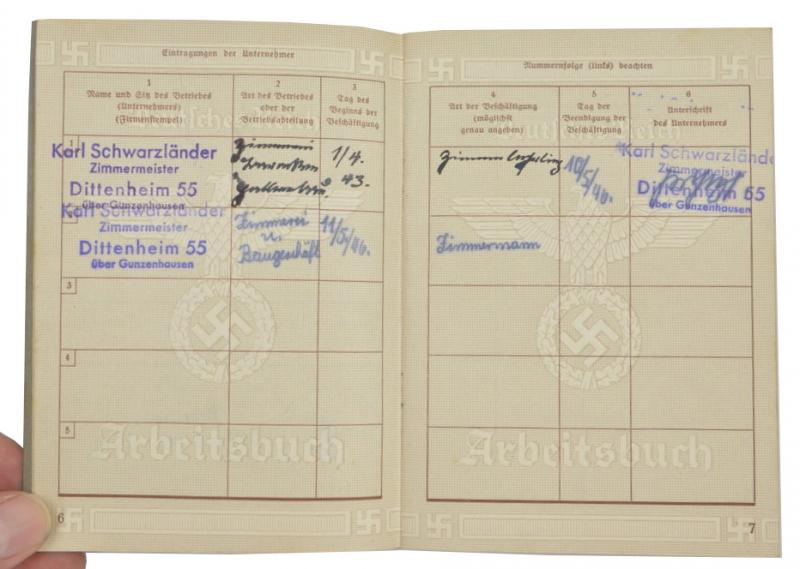 Eintragungen der Unternehmer
1
Name und Sitz des Betriebes
(Unternehmers)
(Firmenstempel)
2
Art des Betriebes
oder der
Betriebsabteilung
3
Tag des
Beginns der
Beschäftigung
1
Karl Schwarzländer
Zimmermeister
Dittenheim 55
über Gunzenhausen
Zimmerei
1/4.
43.
Karl Schwarzländer
Zimmermeister
Dittenheim 55
über Gunzenhausen
Zimmerei
u.
Baugeschäft
11/5/46.
3
4
5
Arbeitsbuch
6
Nummernfolge (links) beachten
4
Art der Beschäftigung
(möglichst
genau angeben)
5
Tag der
Beendigung der
Beschäftigung
6
Unterschrift
des Unternehmers
Deutsches Reich
Zimmerlehrling
10/5/46.
Karl Schwarzländer
Zimmermeister
Dittenheim 55
über Gunzenhausen
Zimmermann
Arbeitsbuch
7